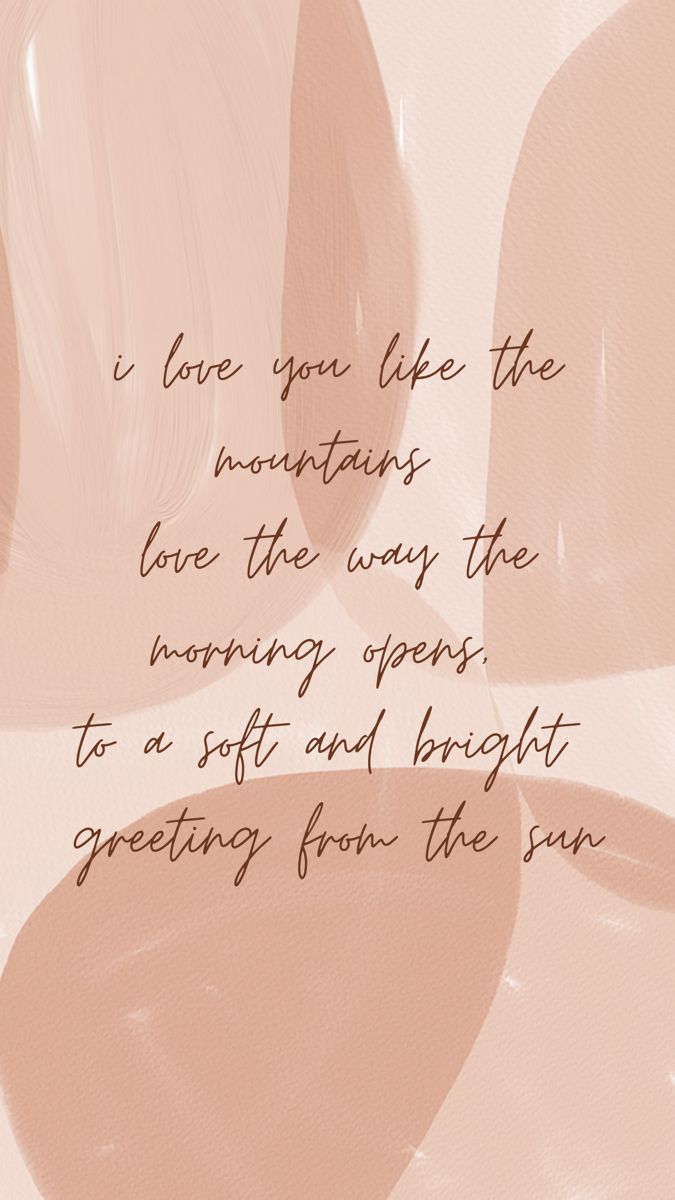 i love you like the
mountains
love the way the
morning opens,
to a soft and bright
greeting from the sun